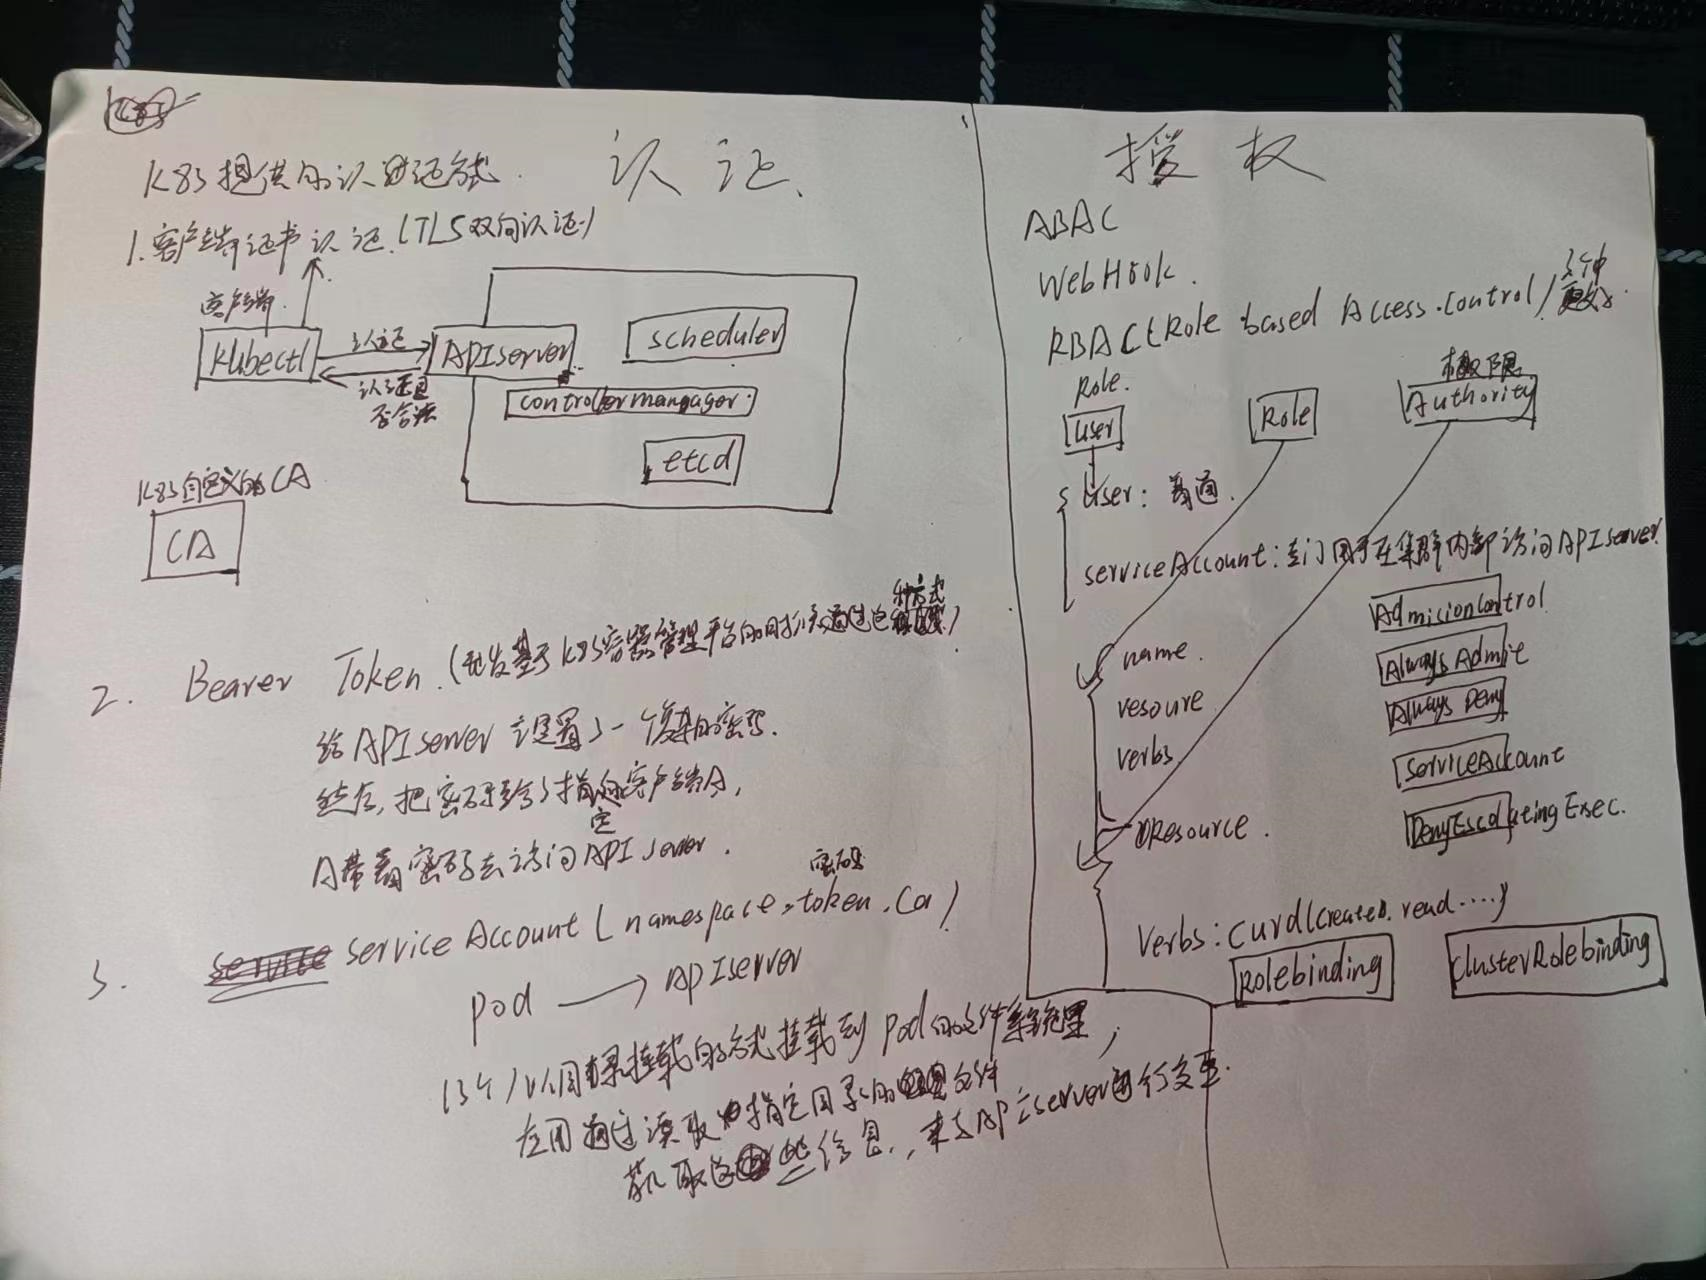 认证
K8S提供的认证方式.
1. 客户端证书认证.(TLS双向认证)
客户端.
Kubectl
认证
认证是否合法
APIserver
scheduler
controllermangager.
etcd
K8S自定义的CA
CA
2. Bearer Token.(开发基于K8S容器管理平台的时候通过这种方式)
给APIserver设置了一个复杂的密码.
然后,把密码给了指定的客户端A,
A带着密码去访问APIserver.
3. service Account( namespace, token, Ca)
密码
Pod → APIserver
(3个)以目录挂载的方式挂载到Pod的文件系统里,
应用通过读取指定目录的文件
获取这些信息,来与APIserver进行交互.
授权
ABAC
WebHook.
RBAC(Role based Access.control)
Role.
User
Role
权限
Authority
User: 普通.
serviceAccount: 专门用于在集群内部访问APIserver.
name.
resoure
verbs.
Resource.
AdmisionControl
Always Admit
Always Deny
ServiceAccount
DenyEscalatingExec.
Verbs: Curd(Created. read....)
Rolebinding
ClusterRolebinding